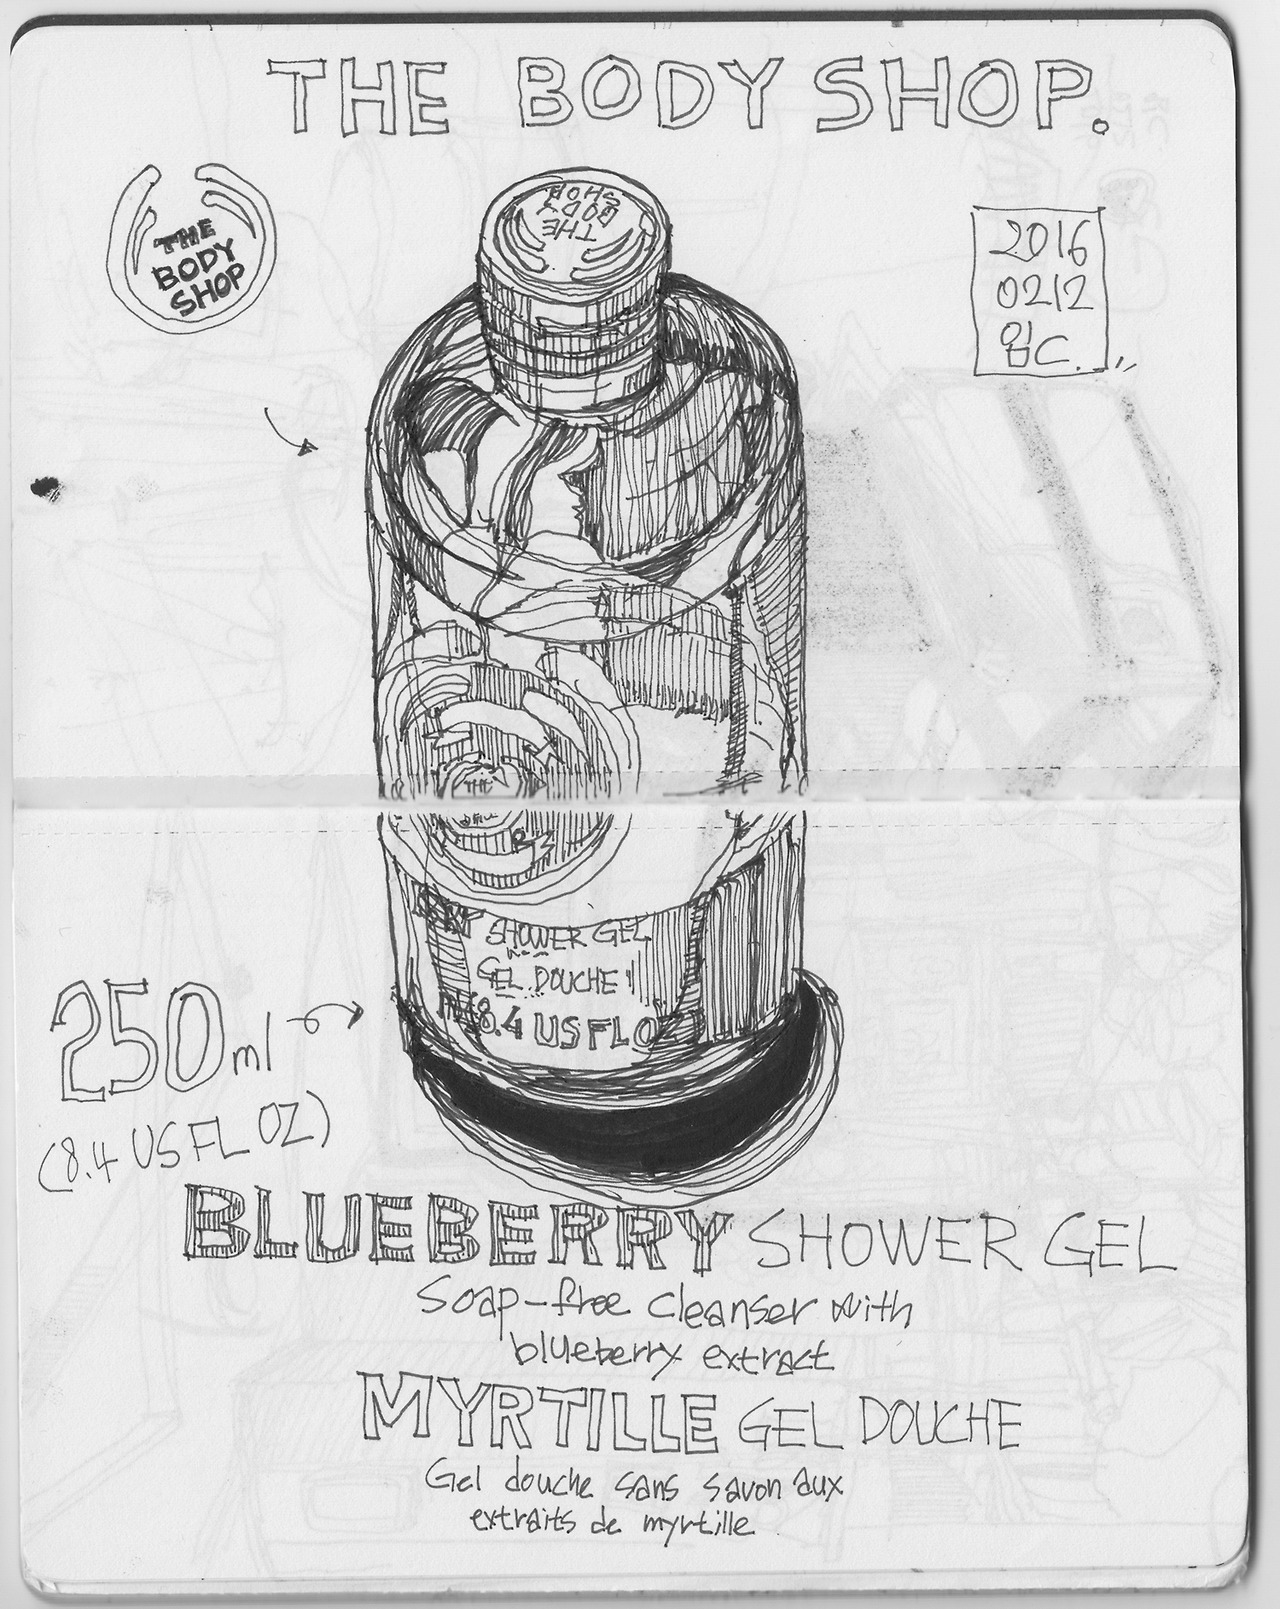 THE BODY SHOP.
THE
BODY
SHOP
THE
BODY
SHOP
2016
0212
임C.
THE
SHOWER GEL
GEL DOUCHE
8.4 US FL OZ
250ml
(8.4 US FL OZ)
BLUEBERRY SHOWER GEL
Soap-free cleanser with
blueberry extract
MYRTILLE GEL DOUCHE
Gel douche sans savon aux
extraits de myrtille